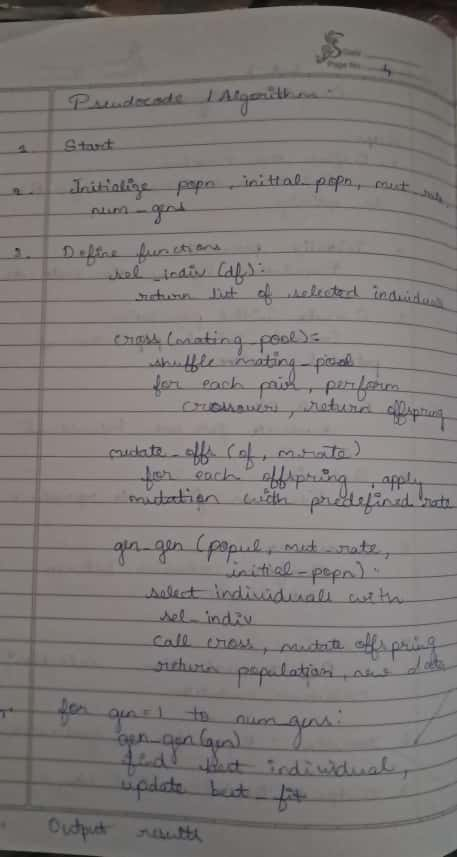 Date
Page No. 4
Pseudocode / Algorithm :
1. Start
2. Initialize popn, initial_popn, mut_rate,
num_gens
3. Define functions
sel_indiv (df):
return list of selected individuals
cross (mating_pool):
shuffle mating_pool
for each pair, perform
crossover, return offspring
mutate_offs (of, m.rate)
for each offspring, apply
mutation with predefined rate
gen_gen (popul, mut_rate,
initial-popn):
select individuals with
sel_indiv
call cross, mutate offspring
return population, new data
for gen=1 to num_gens:
gen_gen(gen)
find best individual,
update best_fit
Output results